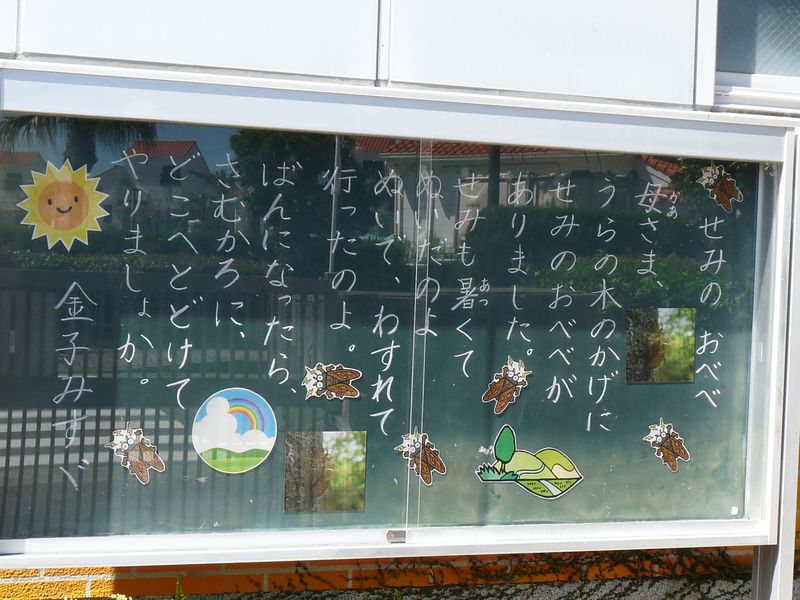 せみの おべべ
母さま、
かあ
うらの木のかげに
せみのおべべが
ありました。
せみも暑くて
あつ
ぬいだのよ
ぬいで、わすれて
行ったのよ。
ばんになったら、
さむかろに、
どこへとどけて
やりましょか。
金子みすゞ